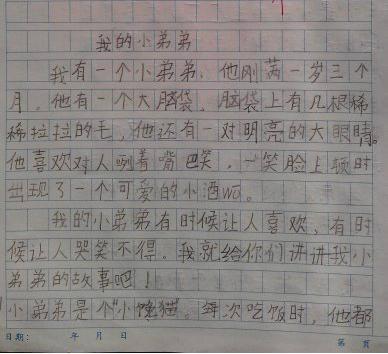 我的小弟弟
我有一个小弟弟，他刚满一岁三个
月。他有一个大脑袋，脑袋上有几根稀
稀拉拉的毛，他还有一对明亮的大眼睛。
他喜欢对人咧着嘴巴笑，一笑脸上顿时
出现了一个可爱的小酒wo。
我的小弟弟有时候让人喜欢，有时
候让人哭笑不得。我就给你们讲讲我小
弟弟的故事吧！
小弟弟是个“小馋猫。每次吃饭时，他都
日期： 年 月 日 第 页